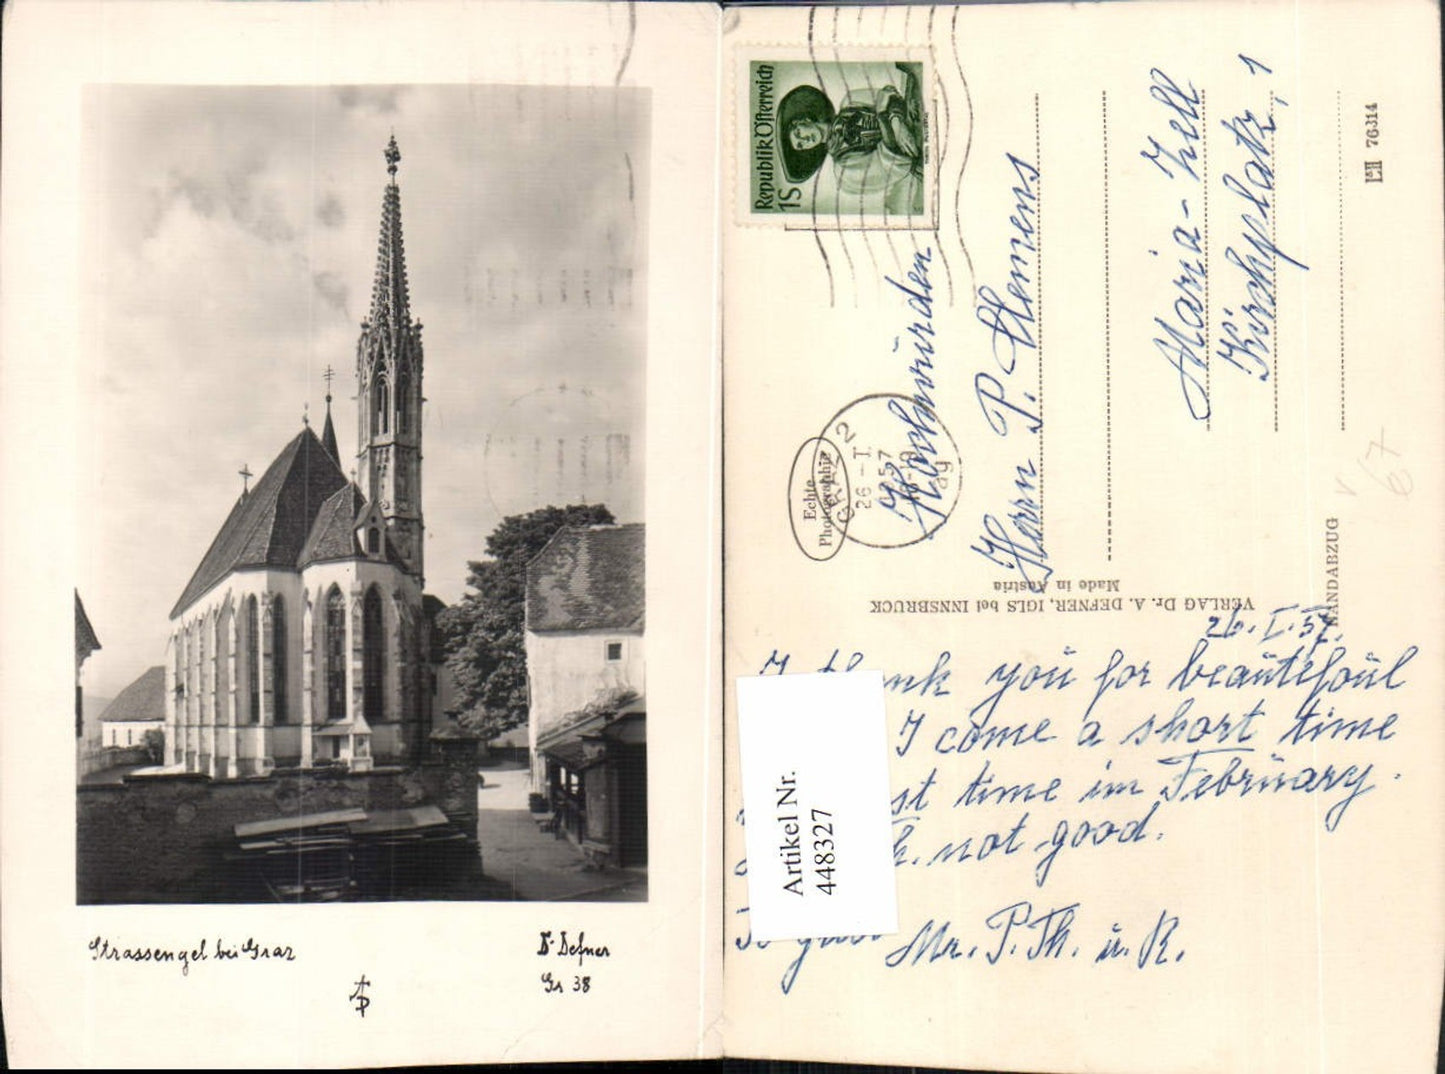 Strassengel bei Graz
Dr Defner
Gr 38
Republik Österreich
1S
GRAZ 2
26 - I.
1957
Echte
Photographie
Hochwürden
Herrn P. Clemens
Maria-Zell
Kirchplatz, 1
L&H 76314
67
HANDABZUG
VERLAG Dr. A. DEFNER, IGLS bei INNSBRUCK
Made in Austria
26. I. 57.
I thank you for beautefoul
I come a short time
time im February.
not good.
To Mr. P. Th. u. R.
Artikel Nr.
448327